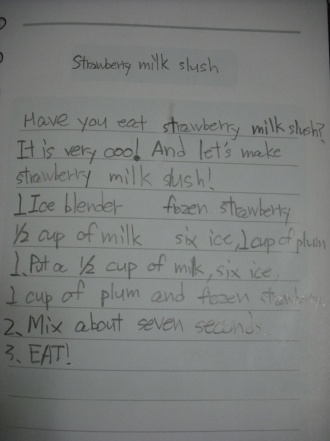 Strawberry milk slush
Have you eat strawberry milk slush?
It is very cool! And let's make
strawberry milk slush!
1 Ice blender fozen strawberry
1/2 cup of milk six ice, 1 cup of plum
1. Put a 1/2 cup of milk, six ice.
1 cup of plum and fozen strawberry.
2. Mix about seven seconds.
3. EAT!